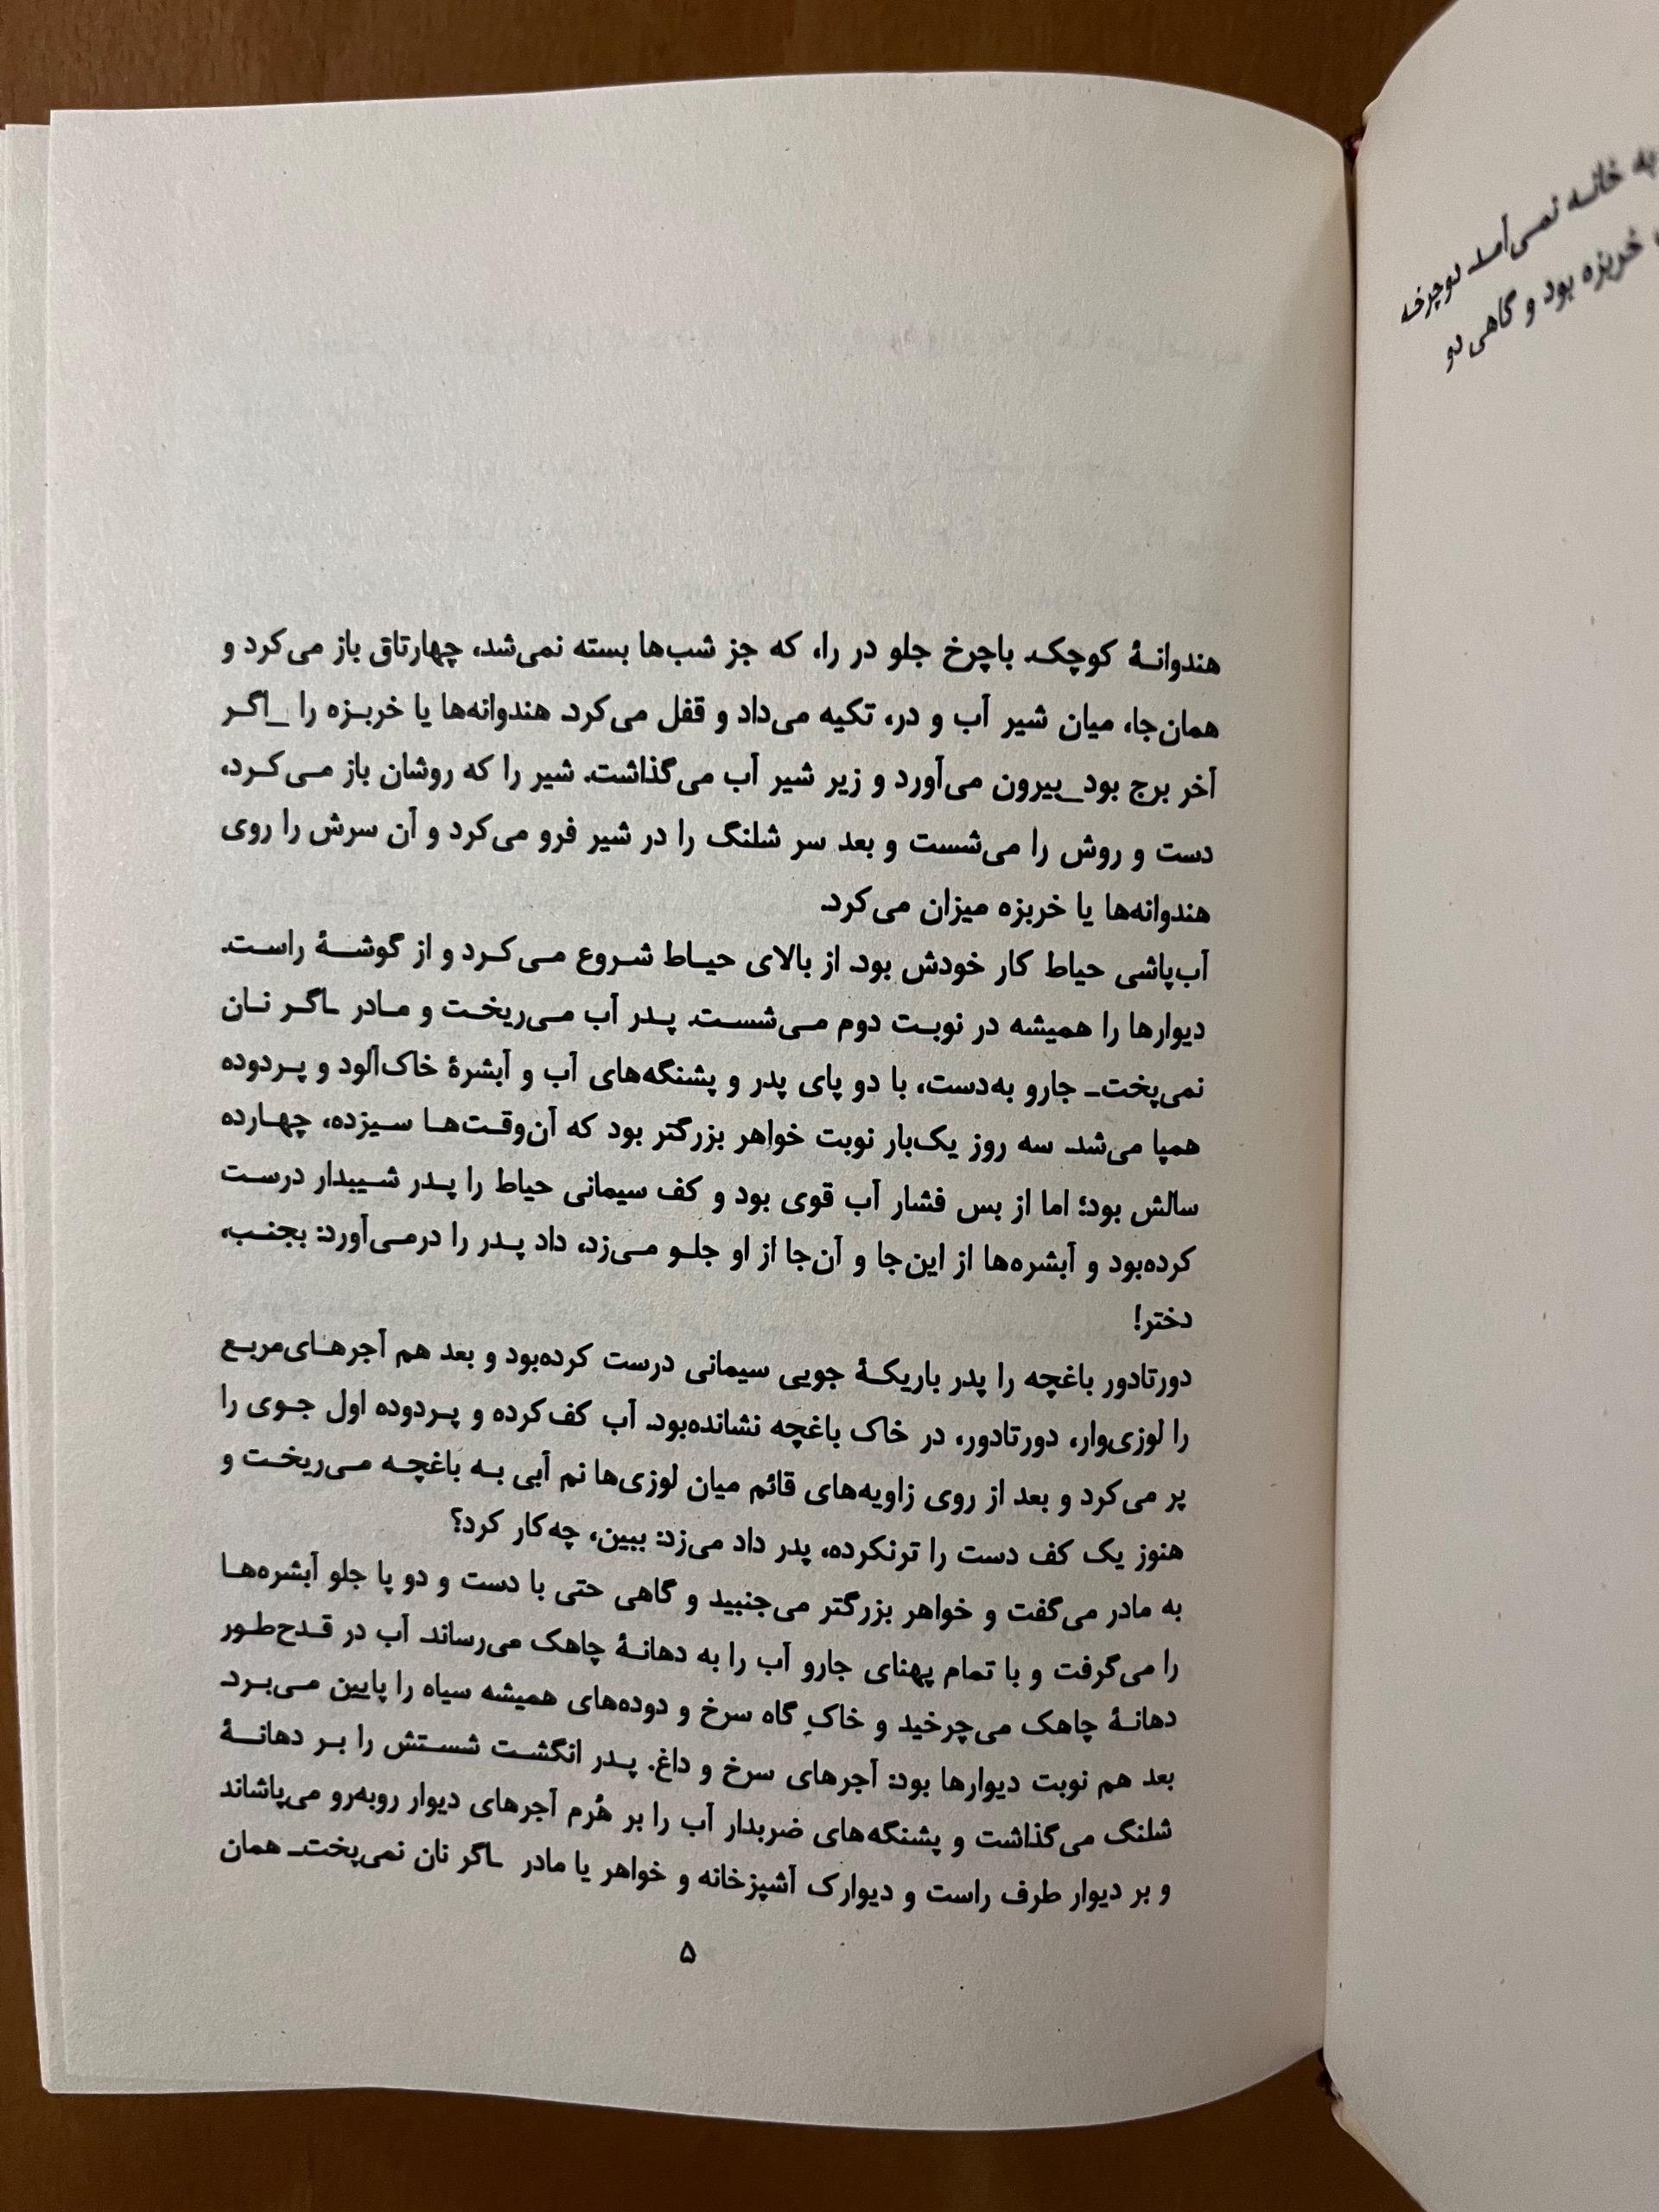 به خانه نمی‌آمد. دوچرخه
خربزه بود و گاهی دو
هندوانهٔ کوچک. باچرخ جلو در را، که جز شب‌ها بسته نمی‌شد، چهارتاق باز می‌کرد و
همان‌جا، میان شیر آب و در، تکیه می‌داد و قفل می‌کرد. هندوانه‌ها یا خربزه را _اگر
آخر برج بود_بیرون می‌آورد و زیر شیر آب می‌گذاشت. شیر را که روشان باز می‌کرد،
دست و روش را می‌شست و بعد سر شلنگ را در شیر فرو می‌کرد و آن سرش را روی
هندوانه‌ها یا خربزه میزان می‌کرد.
آب‌پاشی حیاط کار خودش بود. از بالای حیاط شروع می‌کرد و از گوشهٔ راست.
دیوارها را همیشه در نوبت دوم می‌شست. پدر آب می‌ریخت و مادر ـاگر نان
نمی‌پخت‌ـ جارو به‌دست، با دو پای پدر و پشنگه‌های آب و آبشرهٔ خاک‌آلود و پردوده
همپا می‌شد. سه روز یک‌بار نوبت خواهر بزرگتر بود که آن‌وقت‌ها سیزده، چهارده
سالش بود؛ اما از بس فشار آب قوی بود و کف سیمانی حیاط را پدر شیبدار درست
کرده‌بود و آبشره‌ها از این‌جا و آن‌جا از او جلو می‌زد، داد پدر را درمی‌آورد: بجنب،
دختر!
دورتادور باغچه را پدر باریکهٔ جویی سیمانی درست کرده‌بود و بعد هم آجرهای‌مربع
را لوزی‌وار، دورتادور، در خاک باغچه نشانده‌بود. آب کف‌کرده و پردوده اول جوی را
پر می‌کرد و بعد از روی زاویه‌های قائم میان لوزی‌ها نم آبی به باغچه می‌ریخت و
هنوز یک کف دست را ترنکرده، پدر داد می‌زد: ببین، چه‌کار کرد؟
به مادر می‌گفت و خواهر بزرگتر می‌جنبید و گاهی حتی با دست و دو پا جلو آبشره‌ها
را می‌گرفت و با تمام پهنای جارو آب را به دهانهٔ چاهک می‌رساند. آب در قدح‌طور
دهانهٔ چاهک می‌چرخید و خاکِ گاه سرخ و دوده‌های همیشه سیاه را پایین می‌برد.
بعد هم نوبت دیوارها بود: آجرهای سرخ و داغ. پدر انگشت شستش را بر دهانهٔ
شلنگ می‌گذاشت و پشنگه‌های ضربدار آب را بر هُرم آجرهای دیوار روبه‌رو می‌پاشاند
و بر دیوار طرف راست و دیوارک آشپزخانه و خواهر یا مادر ـاگر نان نمی‌پخت‌ـ همان
۵